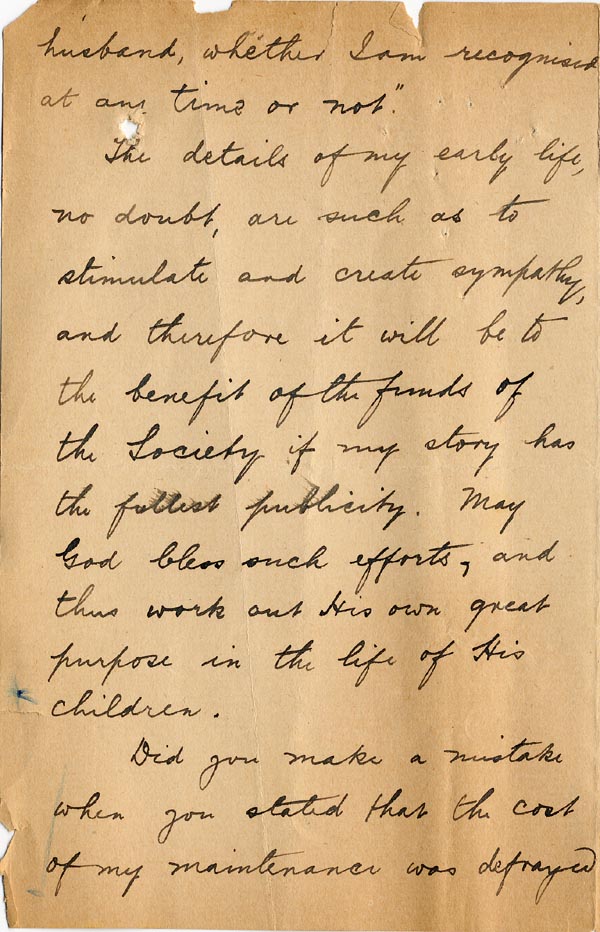 husband, whether I am recognised
at any time or not."
The details of my early life,
no doubt, are such as to
stimulate and create sympathy,
and therefore it will be to
the benefit of the funds of
the Society if my story has
the fullest publicity. May
God bless such efforts, and
thus work out His own great
purpose in the life of His
children.
Did you make a mistake
when you stated that the cost
of my maintenance was defrayed